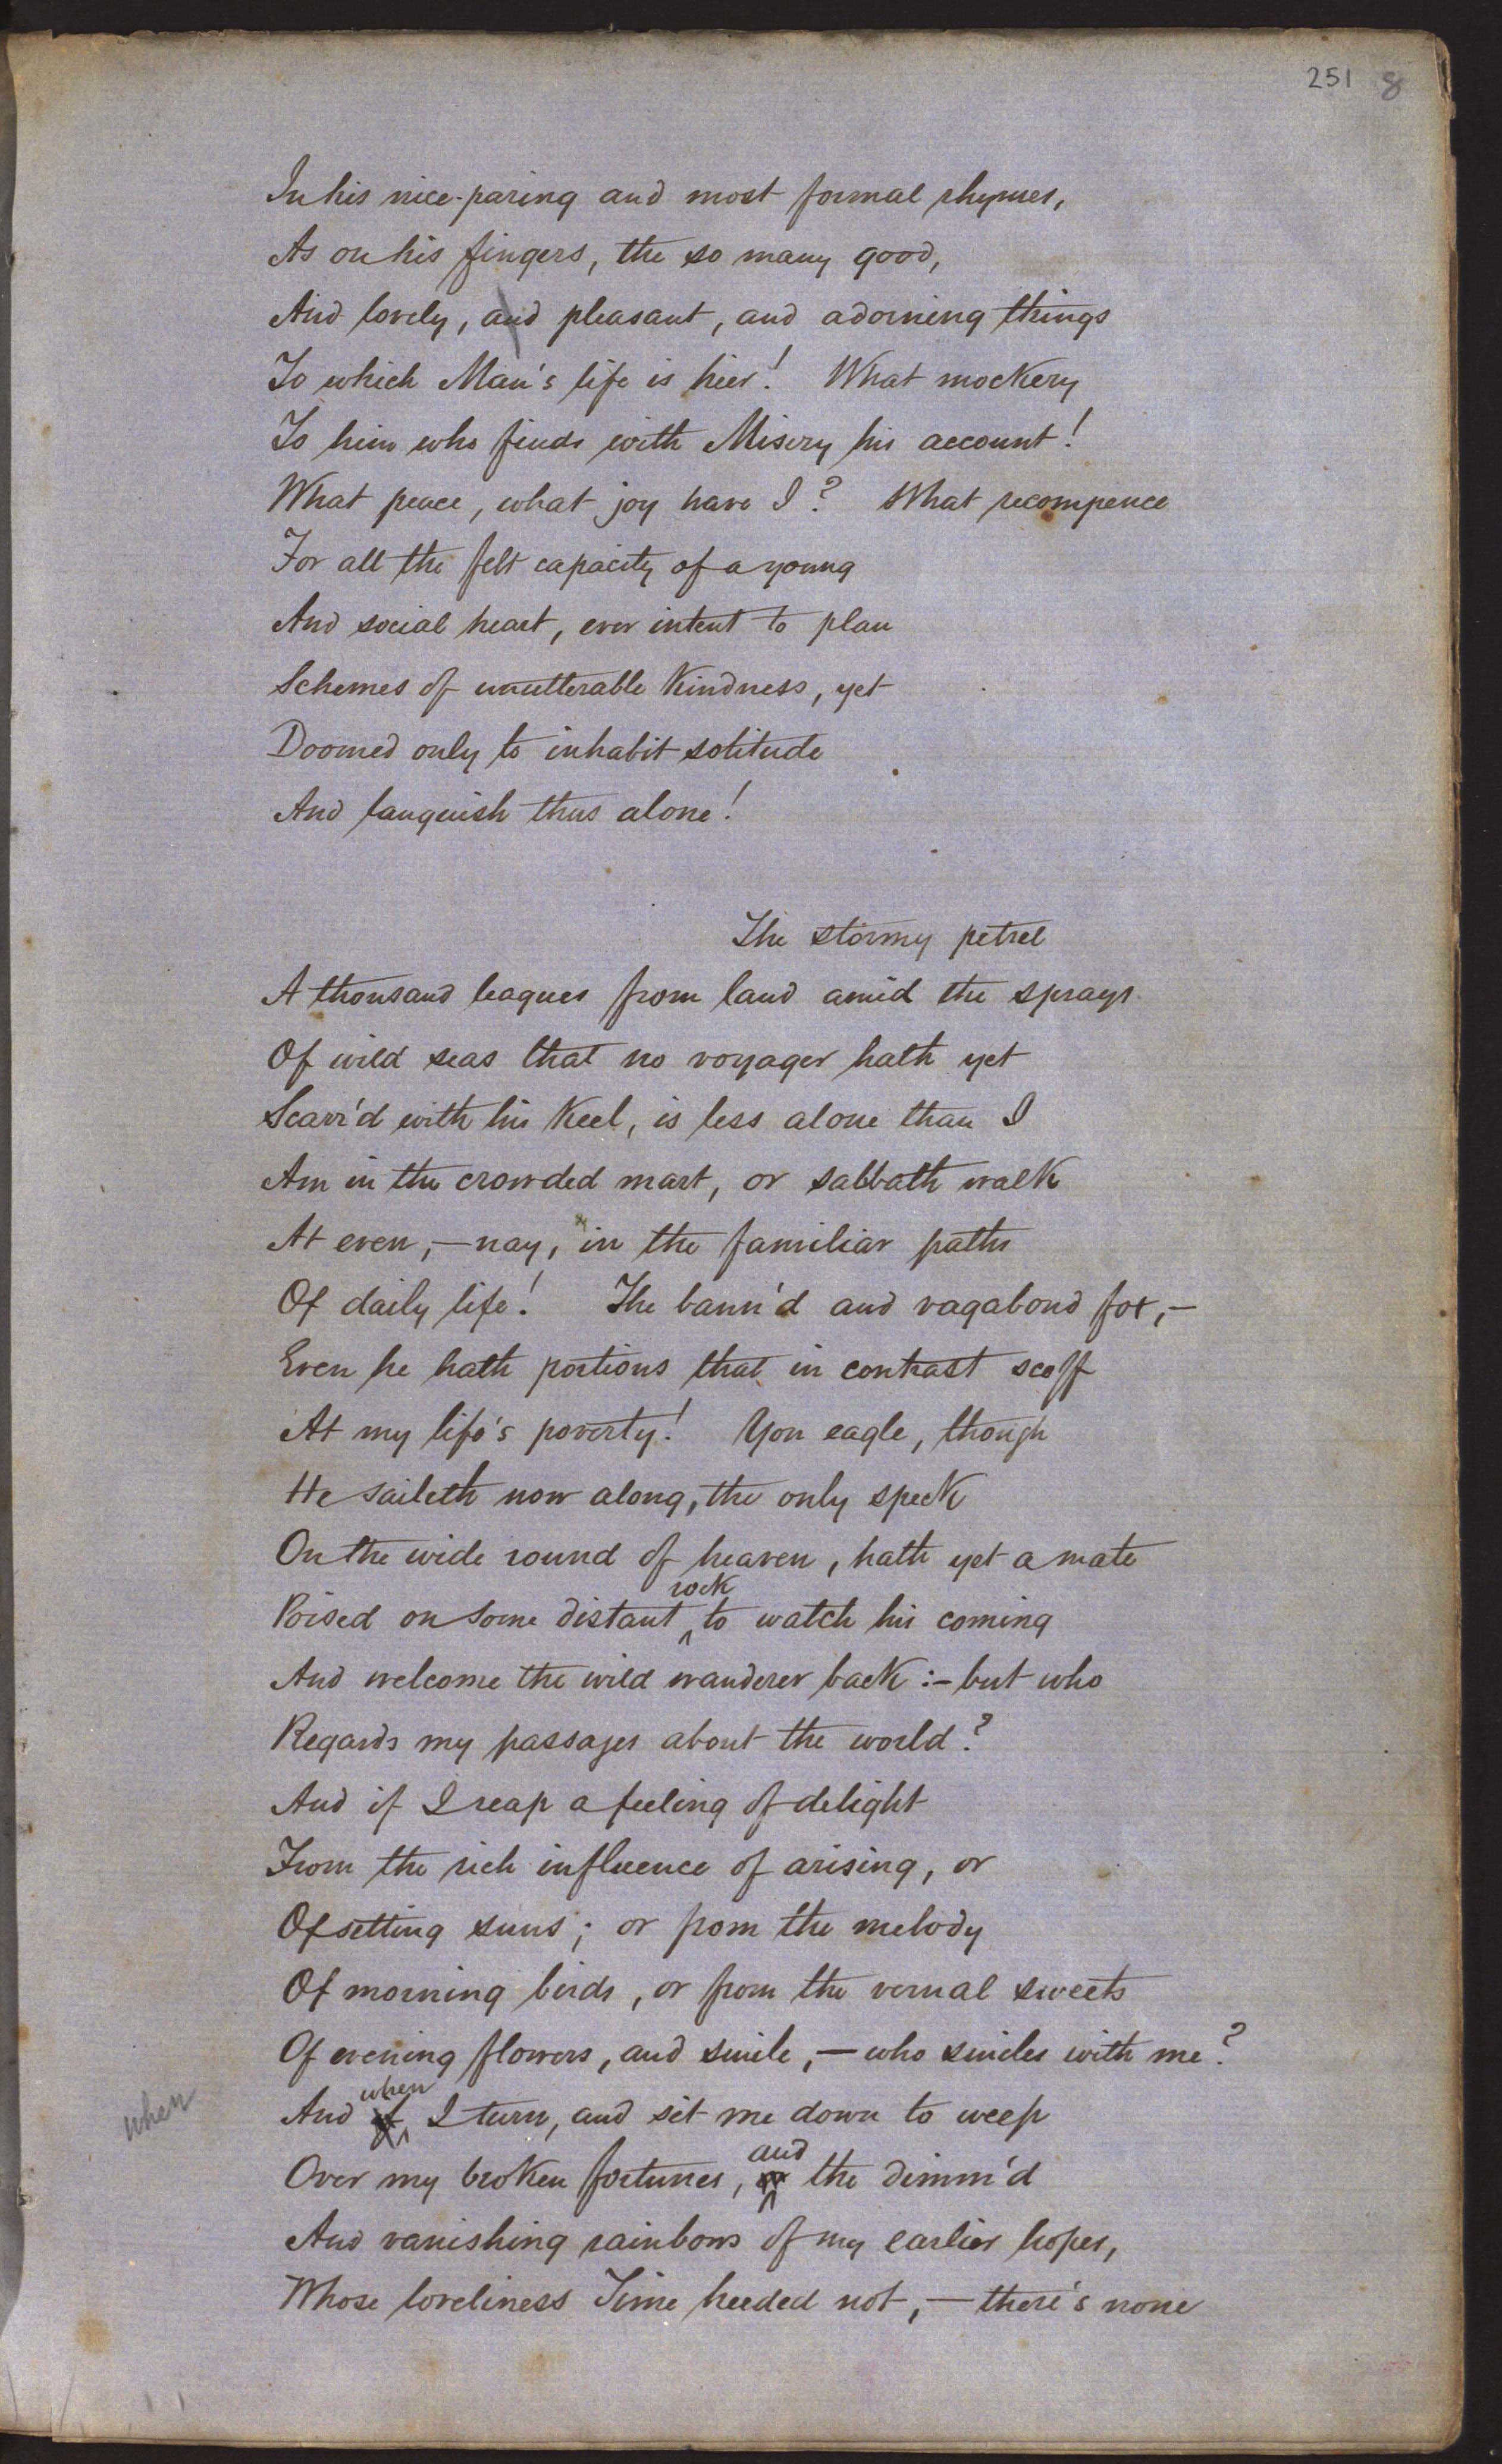 251 8
In his nice-paring and most formal rhymes,
As on his fingers, the so many good,
And lovely, and pleasant, and adorning things
To which Man's life is heir! What mockery
To him who finds with Misery his account!
What peace, what joy have I? What recompence
For all the felt capacity of a young
And social heart, ever intent to plan
Schemes of unutterable kindness, yet
Doomed only to inhabit solitude
And languish thus alone!
The stormy petrel
A thousand leagues from land amid the sprays
Of wild seas that no voyager hath yet
Scarr'd with his keel, is less alone than I
Am in the crowded mart, or sabbath walk
At even,—nay, in the familiar paths
Of daily life! The bann'd and vagabond fox,—
Even he hath portions that in contrast scoff
At my life's poverty! Yon eagle, though
He saileth now along, the only speck
On the wide round of heaven, hath yet a mate
Poised on some distant rock to watch his coming
And welcome the wild wanderer back:—but who
Regards my passages about the world?
And if I reap a feeling of delight
From the rich influence of arising, or
Of setting suns; or from the melody
Of morning birds, or from the vernal sweets
Of evening flowers, and smile,—who smiles with me?
when And if when I turn, and sit me down to weep
Over my broken fortunes, and the dimm'd
And vanishing rainbows of my earlier hopes,
Whose loveliness Time heeded not,—there's none